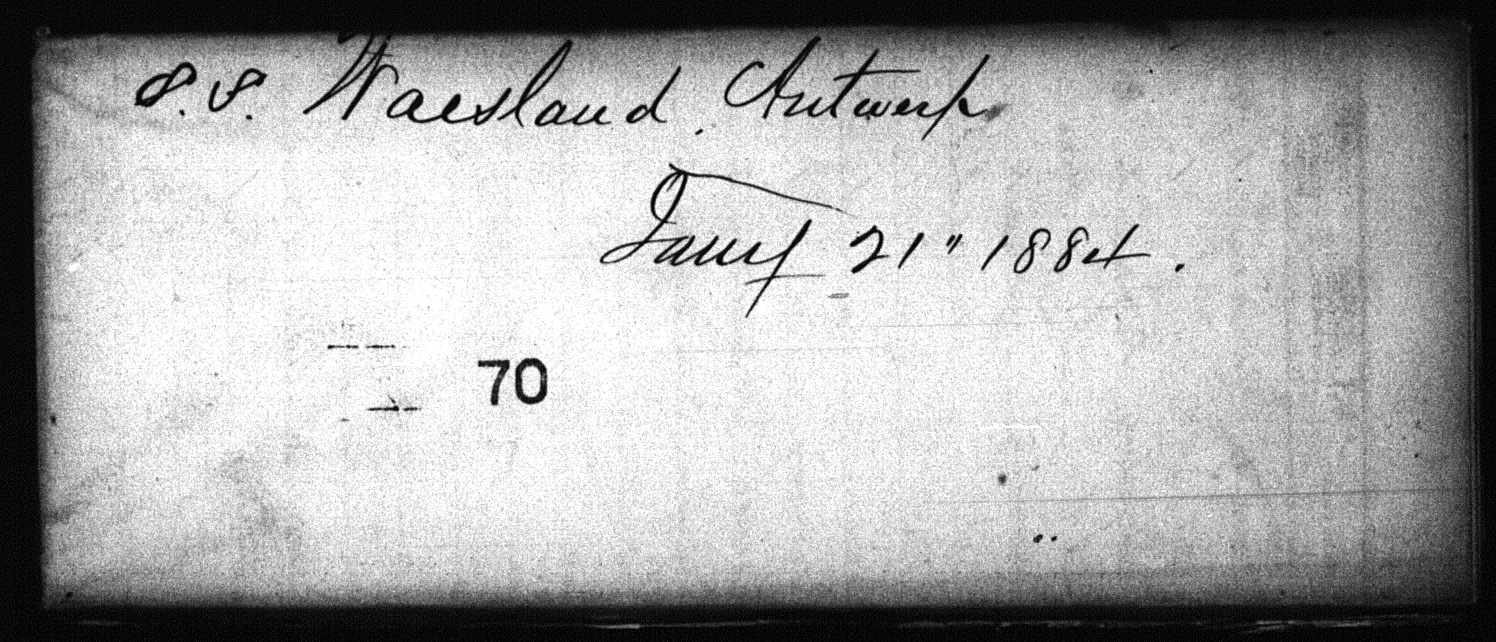 S.S. Waesland. Antwerp
Jany 21" 1884.
70